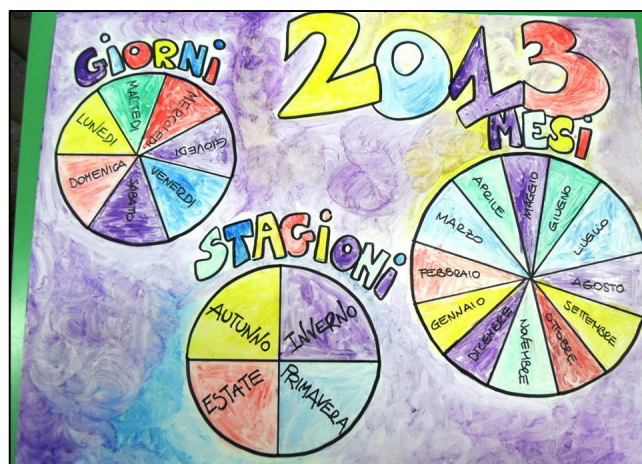 GIORNI
LUNEDI
MARTEDI
MERCOLEDI
GIOVEDI
VENERDI
SABATO
DOMENICA
2013
MESI
GENNAIO
FEBBRAIO
MARZO
APRILE
MAGGIO
GIUGNO
LUGLIO
AGOSTO
SETTEMBRE
OTTOBRE
NOVEMBRE
DICEMBRE
STAGIONI
AUTUNNO
INVERNO
PRIMAVERA
ESTATE